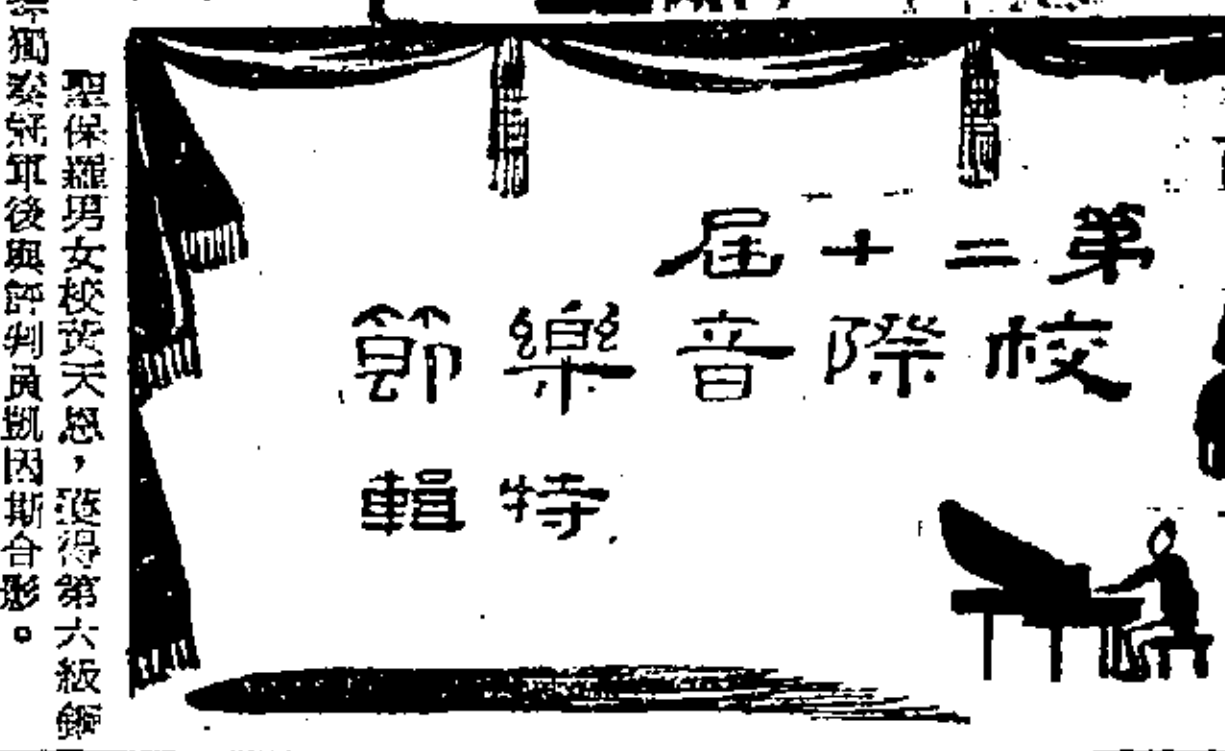 第二十屆
校際音樂節
特輯
聖保羅男女校黃天恩，獲得第六級鋼
琴獨奏冠軍後與評判員凱因斯合影。